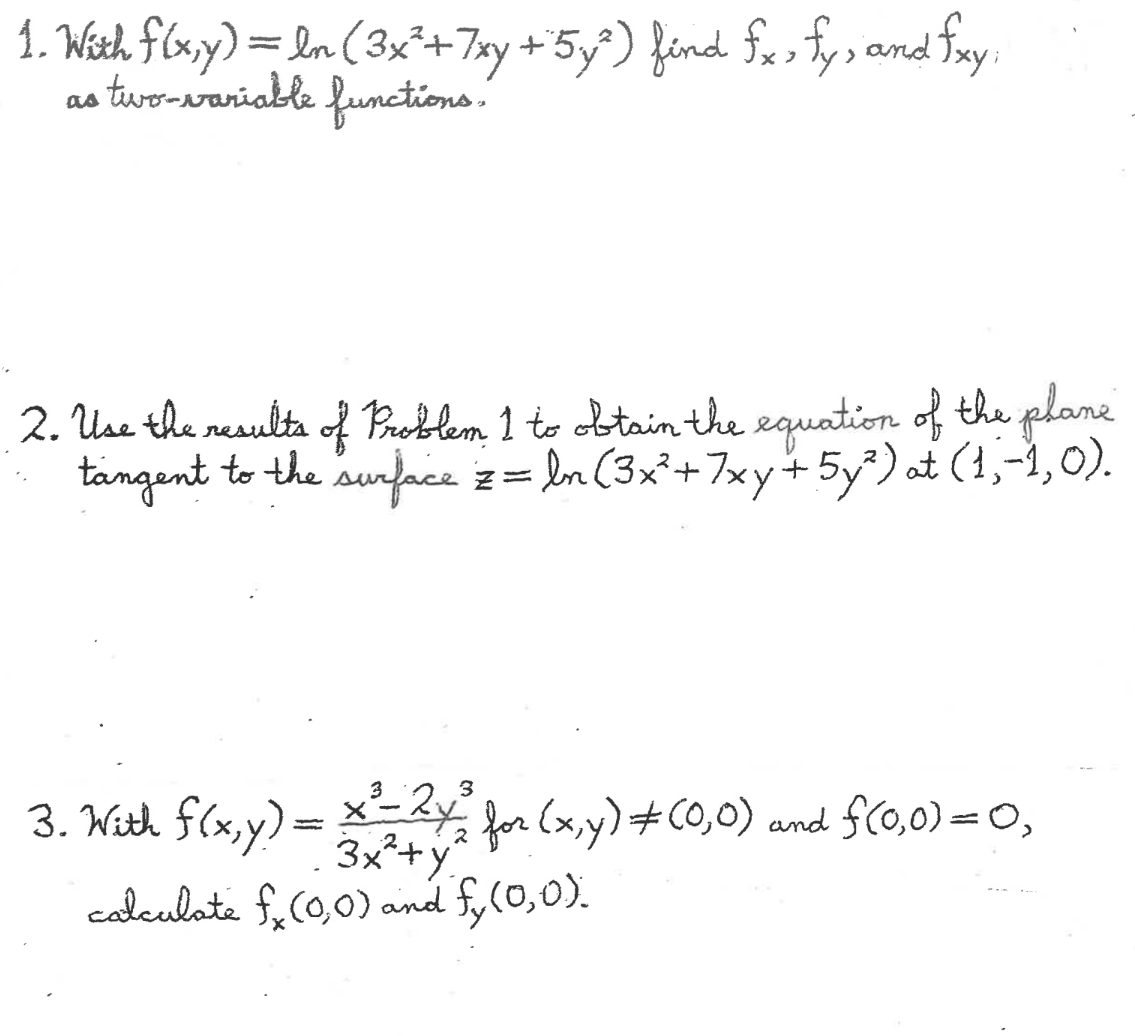 1. With f(x,y) = ln(3x²+7xy+5y²) find fₓ, f_y, and f_xy,
as two-variable functions.
2. Use the results of Problem 1 to obtain the equation of the plane
tangent to the surface z = ln(3x²+7xy+5y²) at (1,-1,0).
3. With f(x,y) = (x³-2y³)/(3x²+y²) for (x,y)≠(0,0) and f(0,0)=0,
calculate fₓ(0,0) and f_y(0,0).